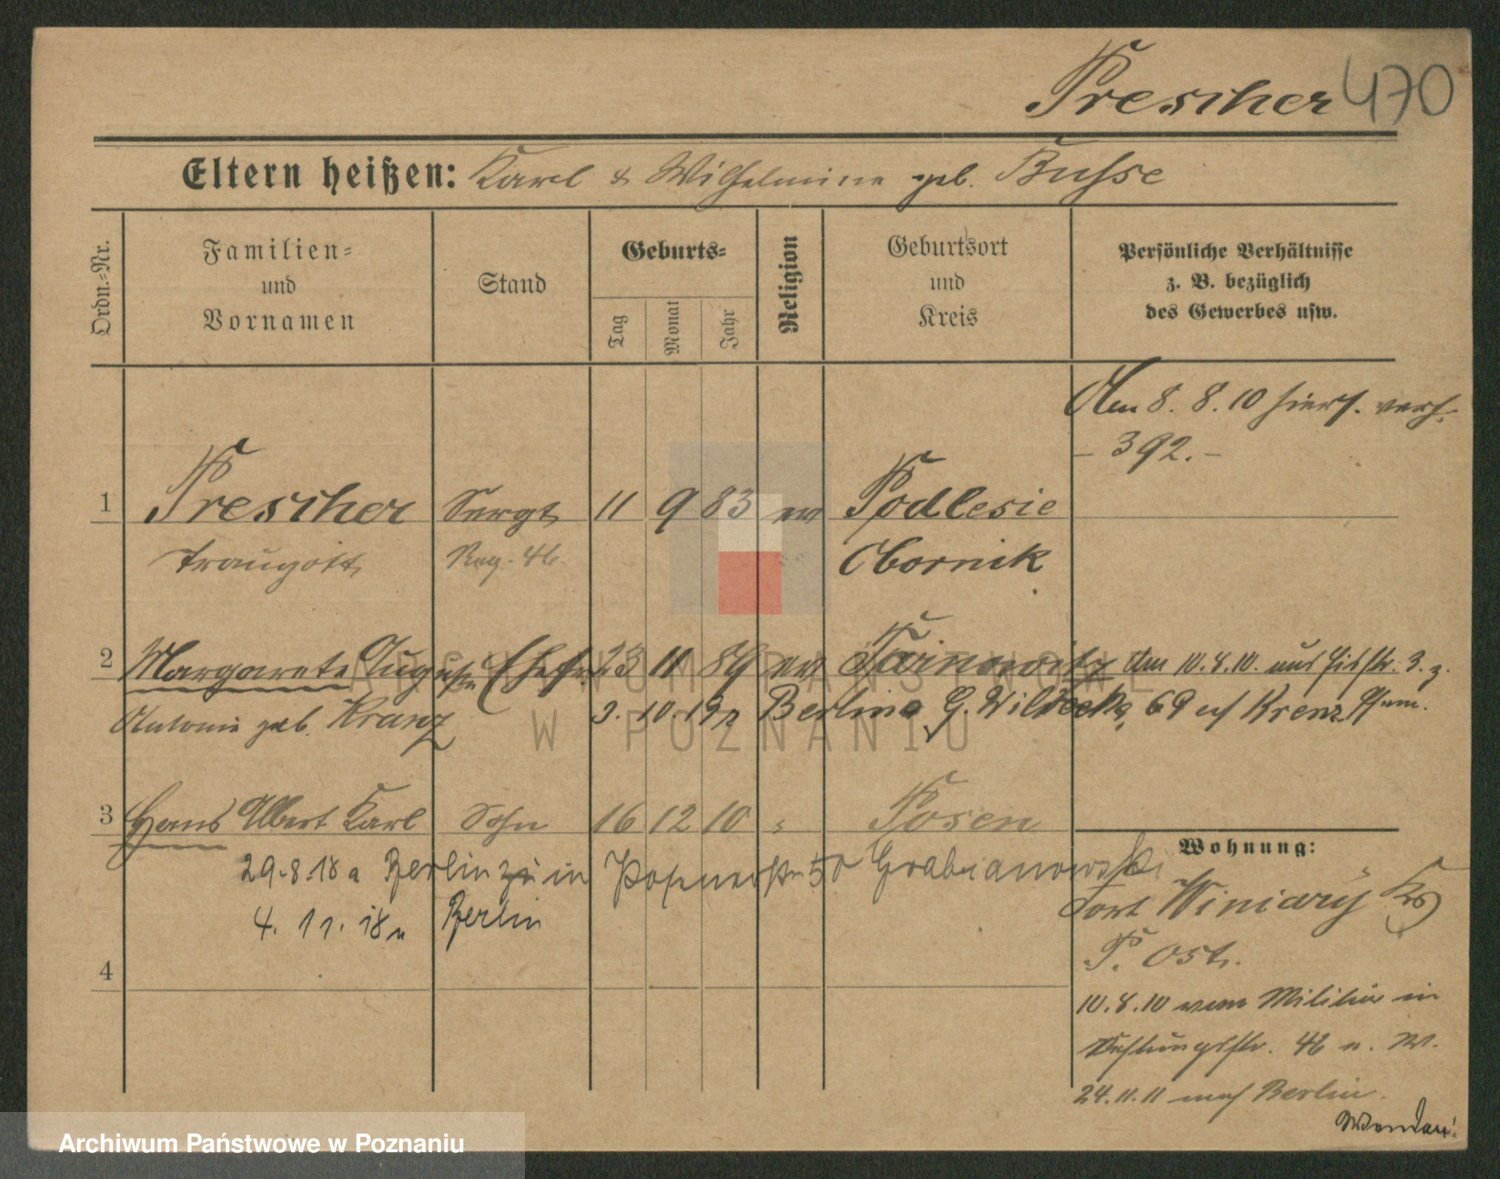 Prescher 470
Eltern heißen: Karl & Wilhelmine geb. Buhse
Ordn.=Nr.
Familien=
und
Vornamen
Stand
Geburts=
Tag
Monat
Jahr
Religion
Geburtsort
und
Kreis
Persönliche Verhältnisse
z. B. bezüglich
des Gewerbes usw.
Am 8. 8. 10 hiers. verh.
- 392. -
1 Prescher Sergt. 11 9 83 ev Podlesie
Traugott Reg. 46. Obornik
2 Margarete Auguste Ehefr 23 11 89 ev Tarnowitz Am 10.8.10. aus 3. z.
Antonie geb. Kranz 3. 10. 12 Berlin G. 69
3 Hans Albert Karl Sohn 16 12 10 " Posen
29.8.18 a Berlin zu in Posenerstr 50 Grabianowski
4. 11. 18 n Berlin
4
Wohnung:
Fort Winiary
P. Ost.
10.8.10 vom Militär in
46 n. W.
24.11.11 nach Berlin.
ARCHIWUM PAŃSTWOWE
W POZNANIU
Archiwum Państwowe w Poznaniu